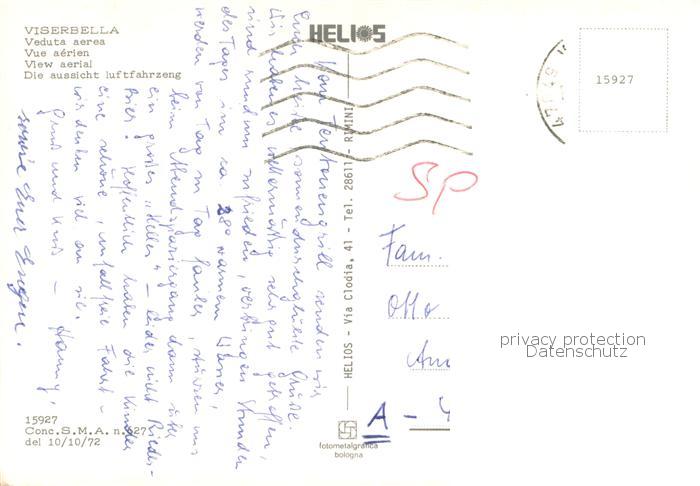 VISERBELLA
Veduta aerea
Vue aérien
View aerial
Die aussicht luftfahrzeng
HELIOS
15927
Vom Teutonengrill senden wir
Euch beide sonnendurchglühte Grüße.
Wir haben es wettermäßig sehr gut getroffen,
sind rundum zufrieden, verbringen Stunden
des Tages im ca. 28° warmen Wasser,
werden von Tag zu Tag fauler, müssen uns
beim Abendspaziergang dann über
ein großes "Helles" – leider nicht Rieder-
Bier! Hoffentlich haben die Kinder
eine schöne, unfallfreie Fahrt –
wir denken viel an sie.
Gruß und Kuss – Hanny,
sowie Euer Eugen.
HELIOS - Via Clodia, 41 - Tel. 28611 - RIMINI
SP
Fam.
Otto
Am
A -
privacy protection
Datenschutz
15927
Conc. S.M.A. n. 627
del 10/10/72
fotometalgrafica
bologna